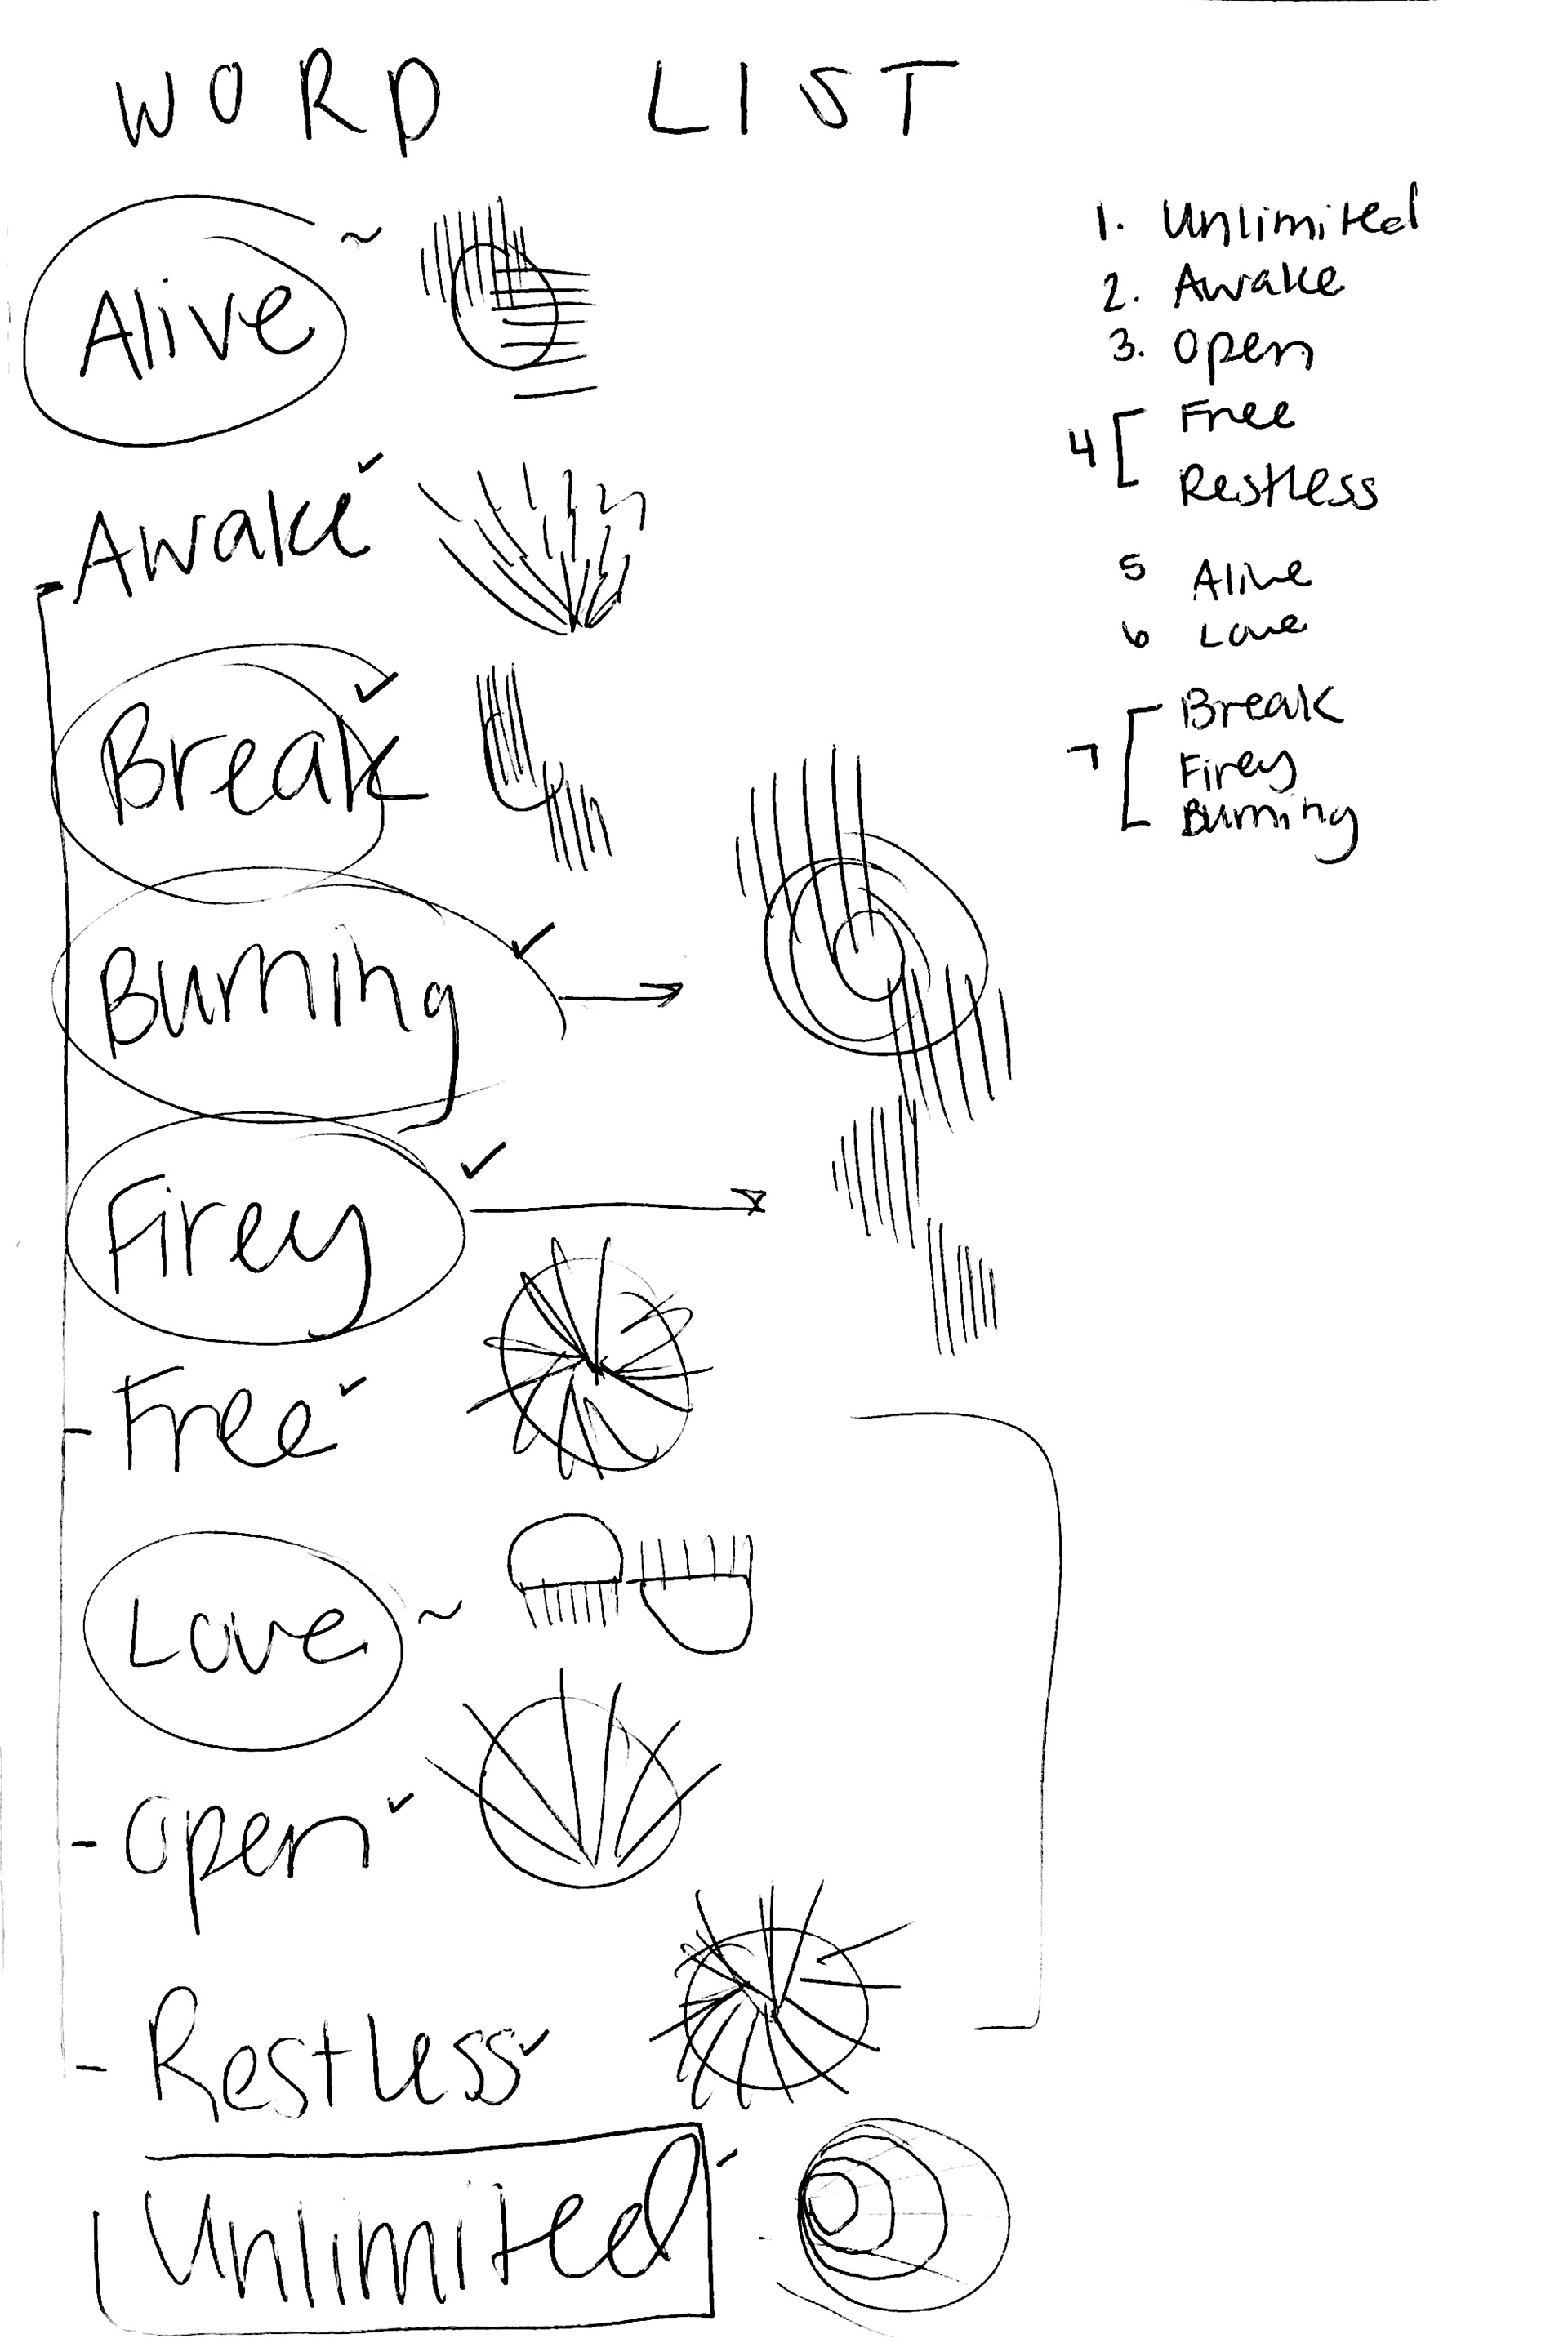 WORD LIST
Alive ~
Awake ✓
Break ✓
Burning ✓
Firey ✓
- Free ✓
Love ~
- Open ✓
- Restless ✓
Unlimited
1. Unlimited
2. Awake
3. Open
4 [ Free
Restless
5 Alive
6 Love
7 [ Break
Firey
Burning